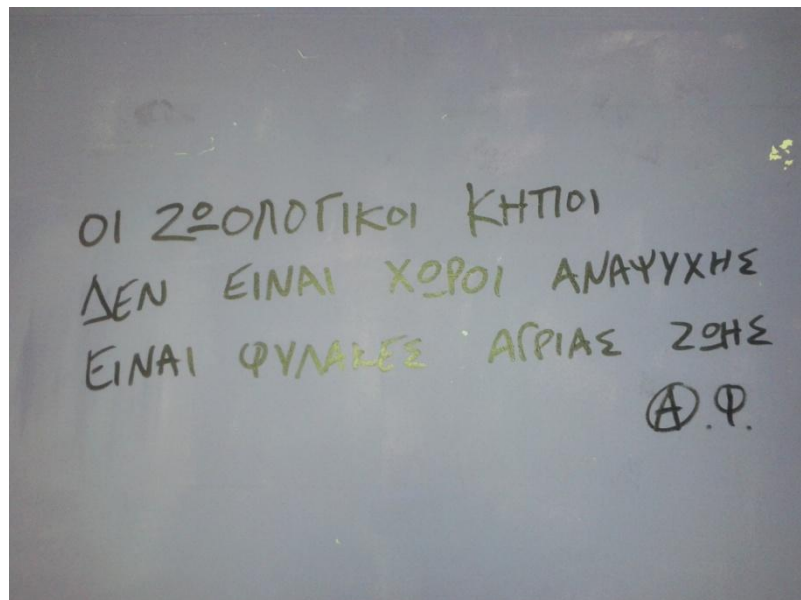 ΟΙ ΖΩΟΛΟΓΙΚΟΙ ΚΗΠΟΙ
ΔΕΝ ΕΙΝΑΙ ΧΩΡΟΙ ΑΝΑΨΥΧΗΣ
ΕΙΝΑΙ ΦΥΛΑΚΕΣ ΑΓΡΙΑΣ ΖΩΗΣ
Α.Φ.